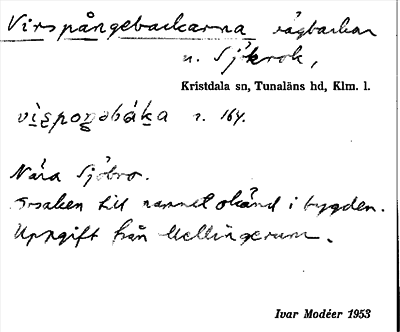 Virspångebackarna vägbackar
n. Sjökrok,
Kristdala sn, Tunaläns hd, Klm. l.
s. 164.
Nära Sjöbro.
Orsaken till namnet okänd i bygden.
Uppgift från Mellingerum.
Ivar Modéer 1953